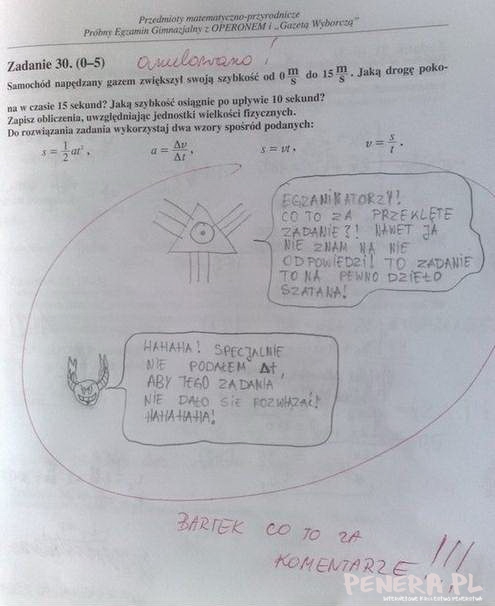 Przedmioty matematyczno-przyrodnicze
Próbny Egzamin Gimnazjalny z OPERONEM i „Gazetą Wyborczą”
Zadanie 30. (0–5)
anulowano!
Samochód napędzany gazem zwiększył swoją szybkość od 0 m/s do 15 m/s. Jaką drogę poko-
na w czasie 15 sekund? Jaką szybkość osiągnie po upływie 10 sekund?
Zapisz obliczenia, uwzględniając jednostki wielkości fizycznych.
Do rozwiązania zadania wykorzystaj dwa wzory spośród podanych:
s = 1/2 at², a = Δv/Δt, s = vt, v = s/t.
EGZAMINATORZY!
CO TO ZA PRZEKLĘTE
ZADANIE?! NAWET JA
NIE ZNAM NA NIE
ODPOWIEDZI! TO ZADANIE
TO NA PEWNO DZIEŁO
SZATANA!
HAHAHA! SPECJALNIE
NIE PODAŁEM Δt,
ABY TEGO ZADANIA
NIE DAŁO SIĘ ROZWIĄZAĆ!
HAHAHAHA!
BARTEK CO TO ZA
KOMENTARZE!!!
PENERA.PL